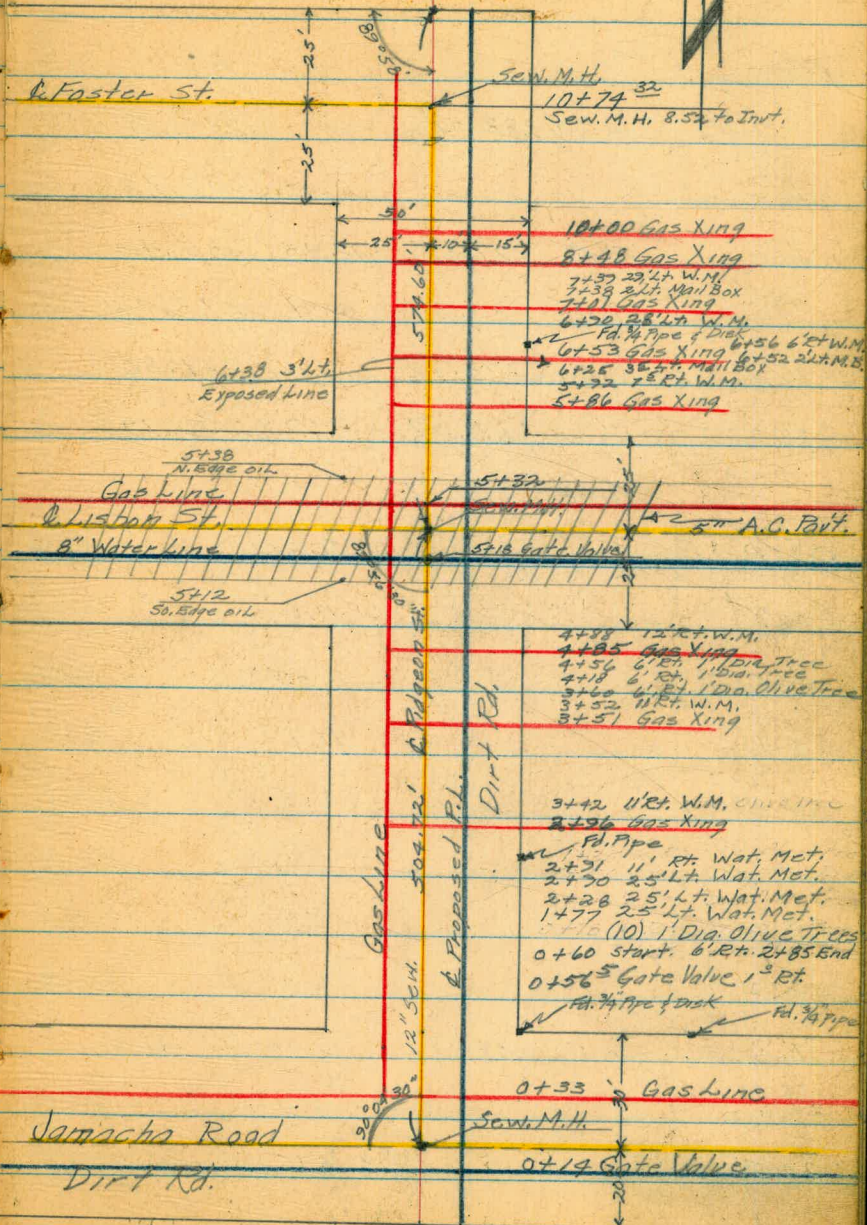 25'
89°58'
℄ Foster St.
Sew. M.H.
10+74 32
Sew. M.H. 8.52 to Invt.
25'
50'
25' 10' 15'
574.60'
10+00 Gas Xing
8+48 Gas Xing
7+39 29' Lt. W.M.
7+38 2' Lt. Mail Box
7+01 Gas Xing
6+90 28' Lt. W.M.
Fd. 3/4 Pipe & Disk
6+56 6' Rt. W.M.
6+53 Gas Xing
6+52 2' Lt. M.B.
6+25 Lt. Mail Box
5+92 Rt. W.M.
5+86 Gas Xing
6+38 3' Lt.
Exposed Line
5+38
N. Edge OIL
5+32
25'
Gas Line
Sew. M.H.
℄ Lisbon St.
5" A.C. Pav't.
8" Water Line
5+18 Gate Valve
25'
5+12
So. Edge OIL
4+88 12' Rt. W.M.
4+85 Gas Xing
4+56 6' Rt. 1' Dia. Tree
4+18 6' Rt. 1' Dia. Tree
3+60 6' Rt. 1' Dia. Olive Tree
3+52 11' Rt. W.M.
3+51 Gas Xing
℄ Pidgeon St.
Dirt Rd.
3+42 11' Rt. W.M.
2+96 Gas Xing
Fd. Pipe
2+91 11' Rt. Wat. Met.
2+90 25' Lt. Wat. Met.
2+28 25' Lt. Wat. Met.
1+77 25' Lt. Wat. Met.
(10) 1' Dia. Olive Trees
0+60 start. 6' Rt. 2+85 End
0+56 5 Gate Valve 1 Rt.
Fd. 3/4" Pipe & Disk
Fd. 3/4" Pipe
Gas Line
504.72'
12" Sew.
℄ Proposed P.L.
90°04'30"
0+33 Gas Line
30'
Jamacha Road
Sew. M.H.
0+14 Gate Valve
Dirt Rd.
20'